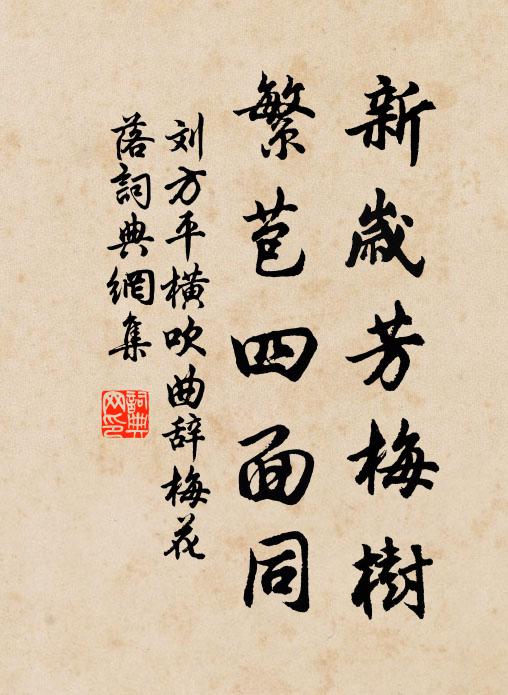 新歲芳梅樹
繁苞四面同
刘方平橫吹曲辞梅花
落詞典網集
詞典
网印